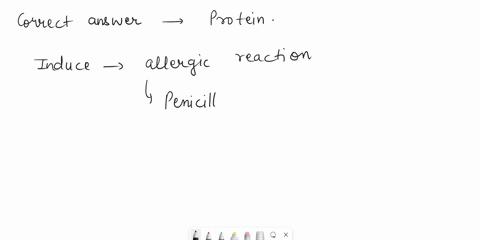 Correct answer → Protein.
Induce → allergic reaction
↳ Penicill